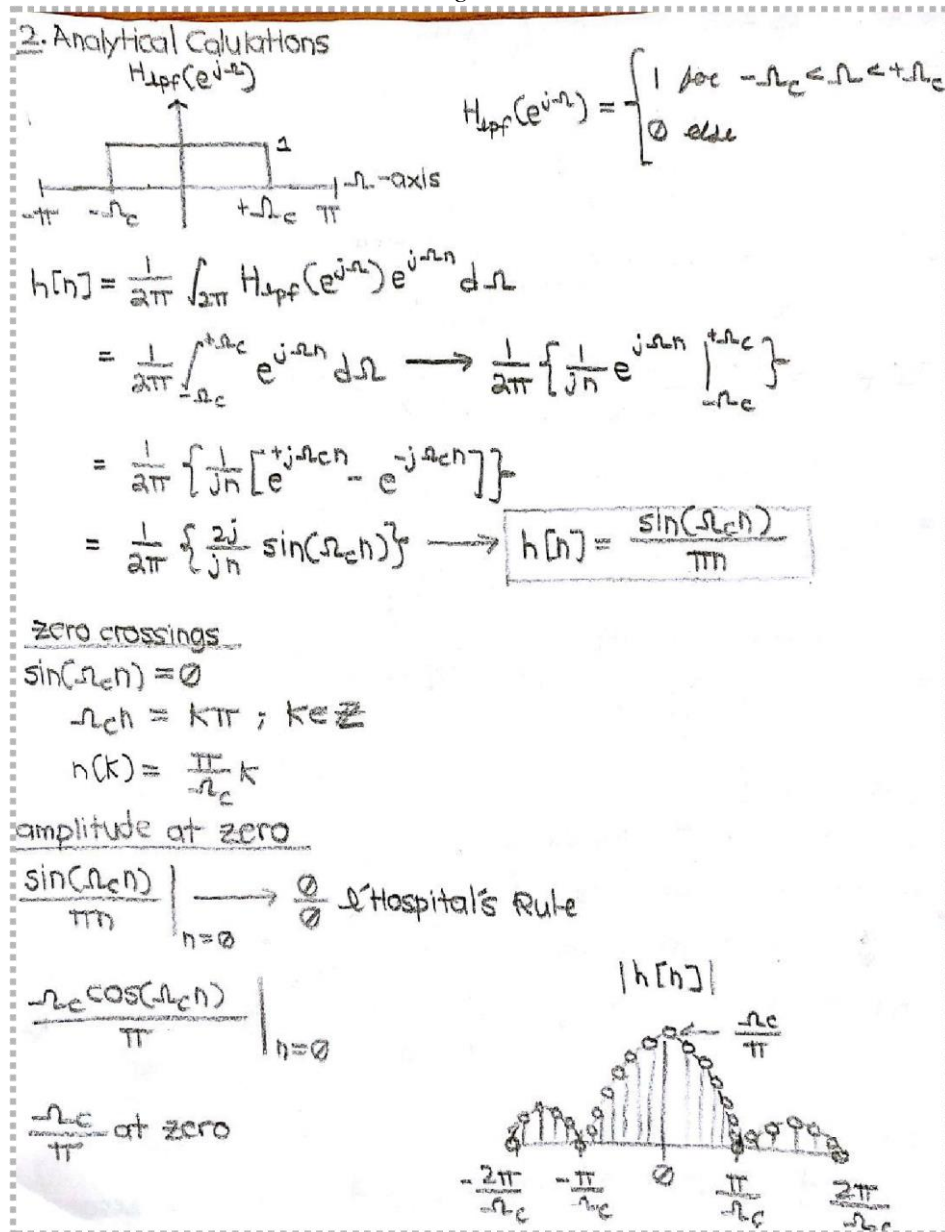 2. Analytical Calulations
H_lpf(e^{jΩ})
H_lpf(e^{jΩ}) = { 1 for -Ω_c < Ω < +Ω_c
0 else
1
Ω-axis
-π -Ω_c +Ω_c π
h[n] = 1/2π ∫_{2π} H_lpf(e^{jΩ}) e^{jΩn} dΩ
= 1/2π ∫_{-Ω_c}^{+Ω_c} e^{jΩn} dΩ → 1/2π { 1/jn e^{jΩn} |_{-Ω_c}^{+Ω_c} }
= 1/2π { 1/jn [ e^{+jΩ_c n} - e^{-jΩ_c n} ] }
= 1/2π { 2j/jn sin(Ω_c n) } → h[n] = sin(Ω_c n)/πn
zero crossings
sin(Ω_c n) = 0
Ω_c n = kπ ; k∈ℤ
n(k) = π/Ω_c k
amplitude at zero
sin(Ω_c n)/πn |_{n=0} → 0/0 l'Hospital's Rule
Ω_c cos(Ω_c n)/π |_{n=0}
Ω_c/π at zero
|h[n]|
Ω_c/π
-2π/Ω_c -π/Ω_c 0 π/Ω_c 2π/Ω_c